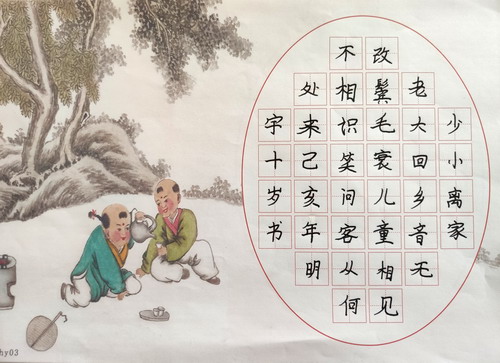 少小离家
老大回乡音无
改鬓毛衰儿童相见
不相识笑问客从何
处来己亥年明
宇十岁书
hy03